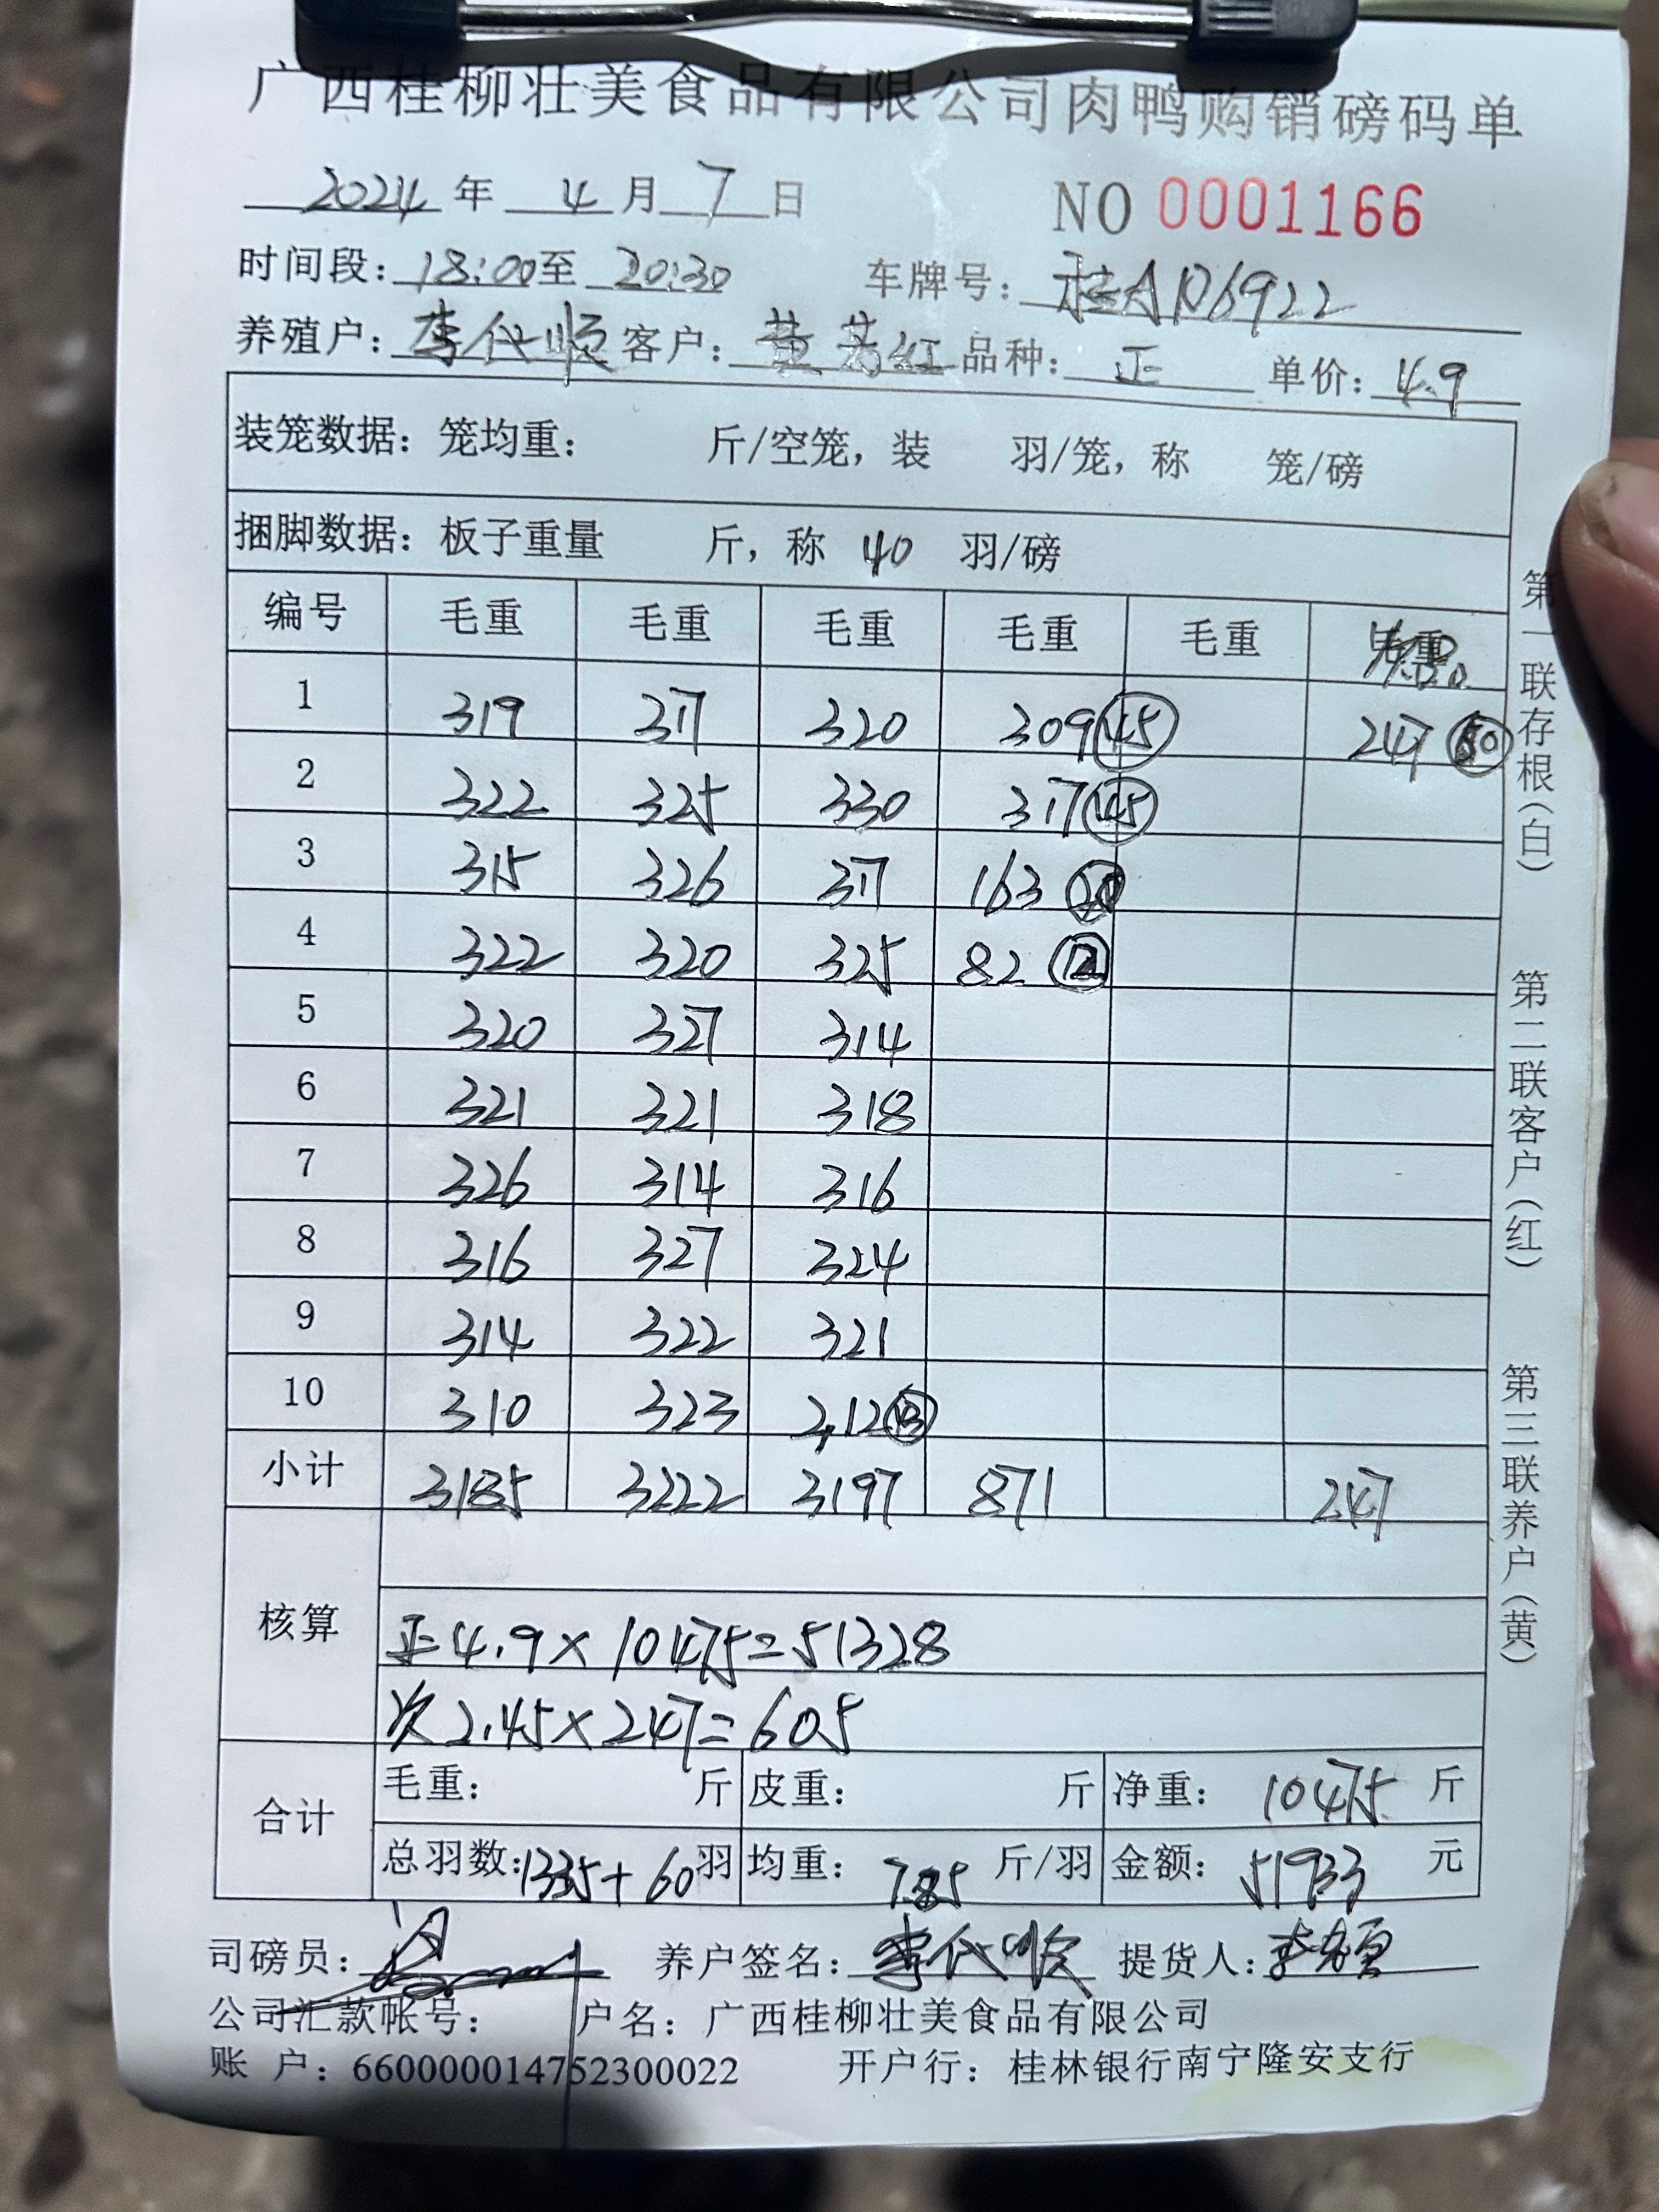 广西桂柳壮美食品有限公司肉鸭购销磅码单
2024年 4月 7日 NO 0001166
时间段：18:00至 20:30 车牌号：桂AD6922
养殖户：李代顺 客户：黄芳红 品种：正 单价：4.9
装笼数据：笼均重： 斤/空笼，装 羽/笼，称 笼/磅
捆脚数据：板子重量 斤，称 40 羽/磅
编号 毛重 毛重 毛重 毛重 毛重
1 319 317 320 309 45 247
2 322 325 330 317 45
3 315 326 317 163
4 322 320 325 82 12
5 320 327 314
6 321 321 318
7 326 314 316
8 316 327 324
9 314 322 321
10 310 323 212
小计 3185 3222 3197 871 247
核算
正 4.9×10475=51328
次 2.45×247=605
合计
毛重： 斤 皮重： 斤 净重： 10475 斤
总羽数：1335+60羽 均重： 7.85 斤/羽 金额： 51933 元
司磅员： 养户签名：李代顺 提货人：
公司汇款帐号： 户名：广西桂柳壮美食品有限公司
账 户：660000014752300022 开户行：桂林银行南宁隆安支行
第一联存根（白） 第二联客户（红） 第三联养户（黄）